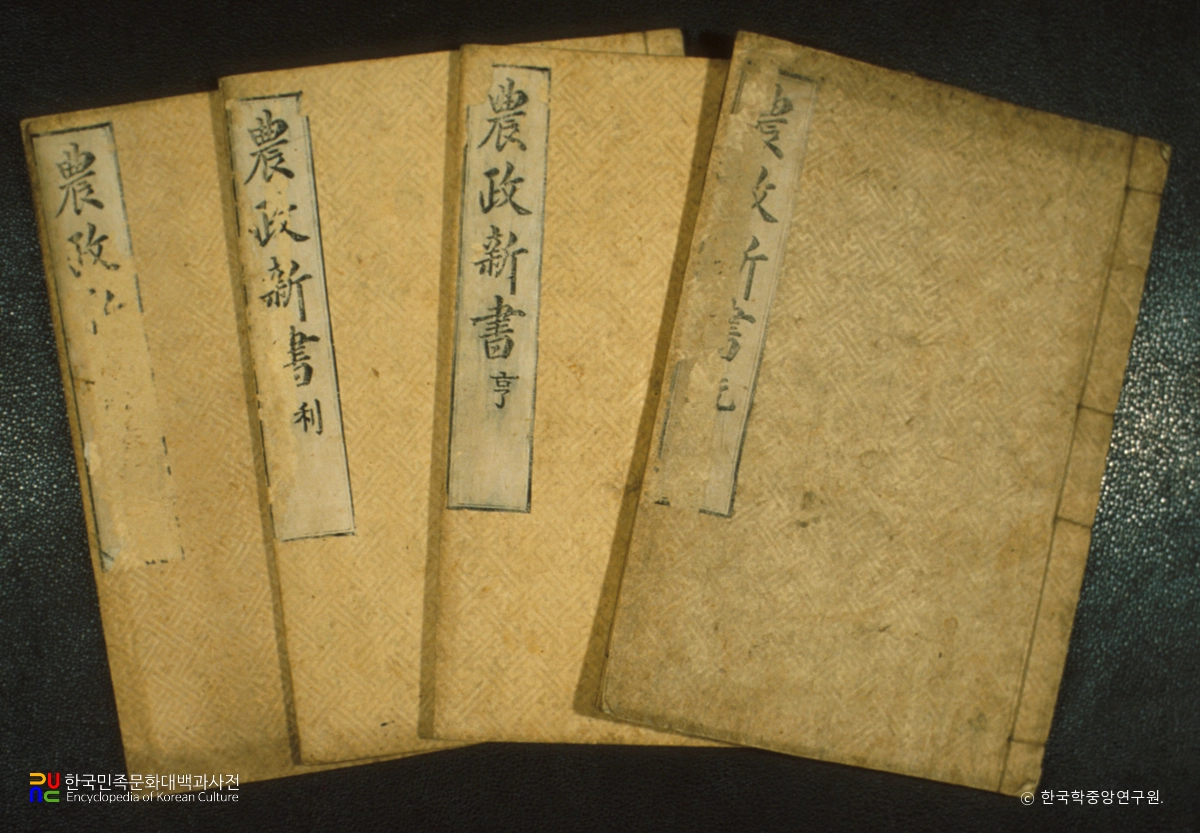 農政新書 元
農政新書 亨
農政新書 利
農政
한국민족문화대백과사전
Encyclopedia of Korean Culture
ⓒ 한국학중앙연구원.